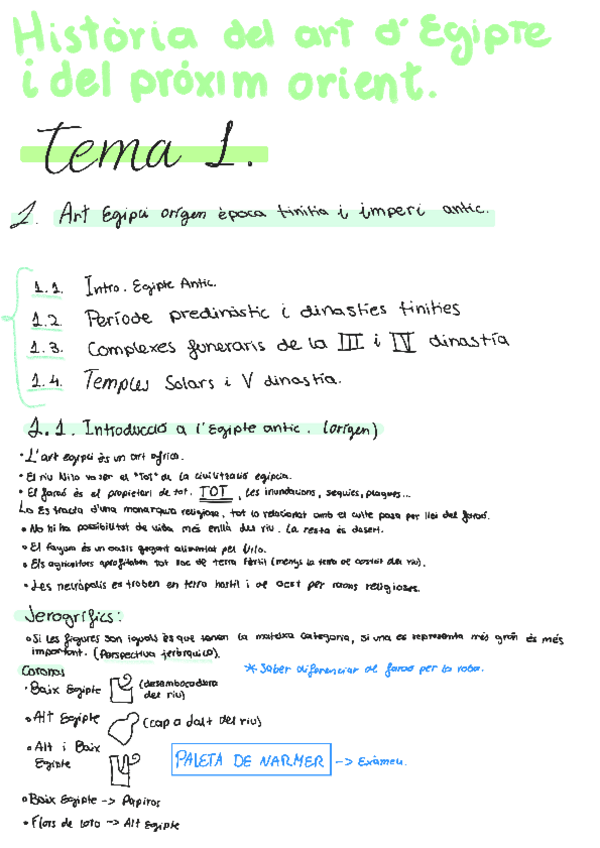 Història del art d'Egipte
i del próxim orient.
Tema 1.
1. Art Egipci orígen època tinitia i imperi antic.
1.1. Intro. Egipte Antic.
1.2 Període predinàstic i dinasties tinities
1.3. Complexes funeraris de la III i IV dinastía
1.4. Temples Solars i V dinastía.
1.1. Introducció a l'Egipte antic. (orígen)
• L'art egipci és un art africa.
• El riu Nilo va ser el "Tot" de la civilització egipcia.
• El faraó és el propietari de tot. TOT, les inundacions, sequies, plagues...
Lo Es tracta d'una monarquia religiosa, tot lo relacionat amb el culte passa per llei del faraó.
• No hi ha possibilitat de vida més enllà del riu. La resta és desert.
• El Fayum és un oasis gegant alimentat pel Nilo.
• Els agricultors aprofitaben tot tros de terra fèrtil (menys la terra de costat del riu).
• Les necrópolis es troben en terra hostil i de oest per raons religioses.
Jerogrífics:
• Si les figures son iguals és que tenen la mateixa categoria, si una es representa més gran és més
important. (Perspectiva jeràrquica).
Coronas
* Saber diferenciar al faraó per la roba.
• Baix Egipte (desembocadura
del riu)
• Alt Egipte (cap a dalt del riu)
• Alt i Baix
Egipte
PALETA DE NARMER -> Exàmen.
• Baix Egipte -> Papiros
• Flors de loto -> Alt Egipte